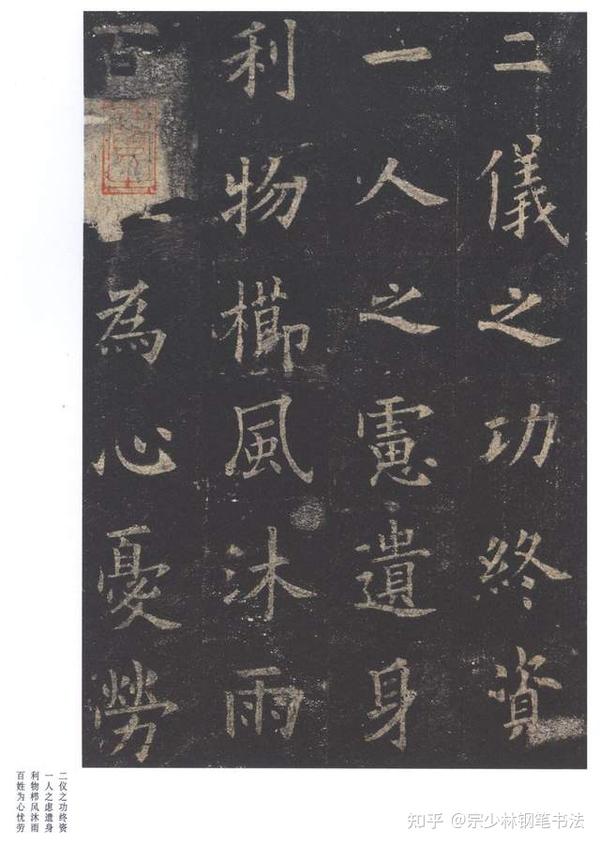 二儀之功終資
一人之慮遺身
利物櫛風沐雨
百
為心憂勞
二仪之功终资
一人之虑遗身
利物栉风沐雨
百姓为心忧劳
知乎 @宗少林钢笔书法